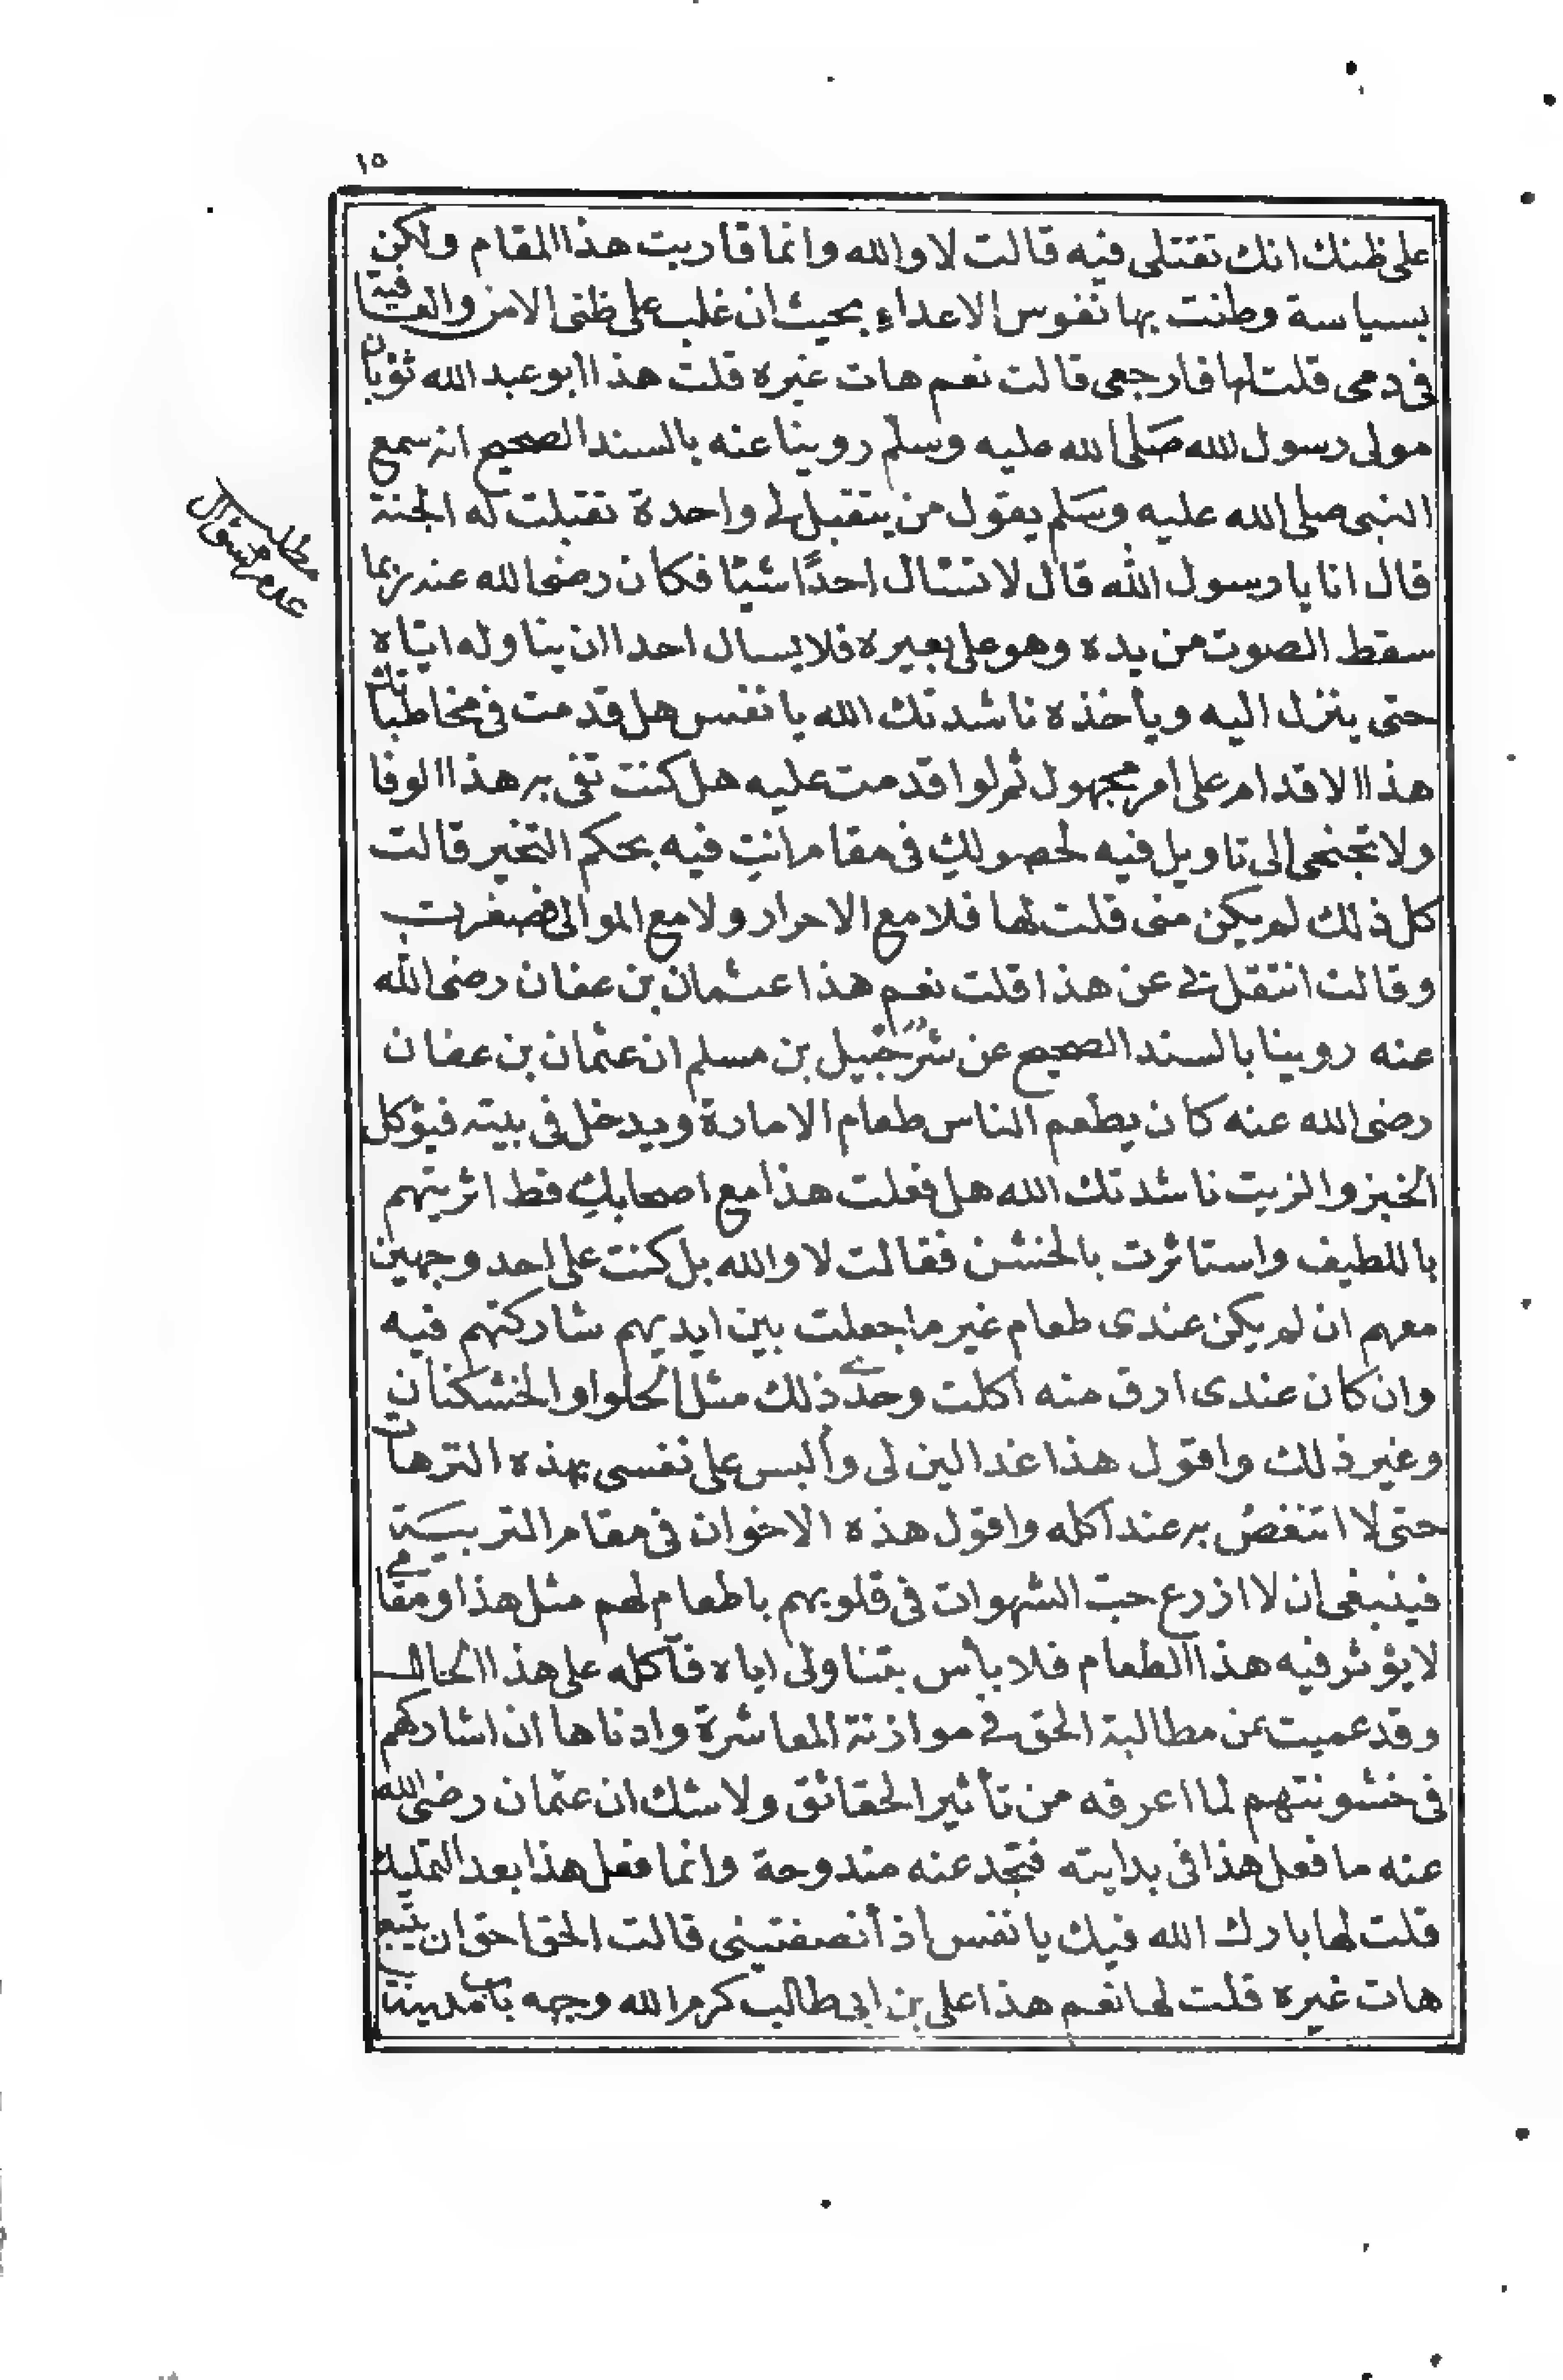 ١٥
على ظنك انك تقتلى فيه قالت لا والله وانما قاربت هذا المقام ولكن
بسياسة وطنت بها نفوس الاعداء بحيث ان غلب على ظنى الامن والعافية
فى دمى قلت لها فارجعى قالت نعم هات غيره قلت هذا ابو عبد الله ثوبان
مولى رسول الله صلى الله عليه وسلم روينا عنه بالسند الصحيح انه سمع
النبى صلى الله عليه وسلم يقول من يتقبل لى واحدة تقبلت له الجنة
قال انا يا رسول الله قال لا تسئال احدًا شيئا فكان رضى الله عنه ربما
سقط الصوت من يده وهو على بعيره فلا يسال احدا ان يناوله اياه
حتى ينزل اليه ويأخذه ناشدتك الله يا نفس هل قدمت فى مخاطباتك
هذا الاقدام على أمر مجهول ثم لو اقدمت عليه هل كنت تفى به هذا الوفا
ولا تجنحى الى تاويل فيه لحصولك فى مقام انتِ فيه بحكم التخير قالت
كل ذلك لم يكن منى قلت لها فلا مع الاحرار ولا مع الموالى فصغرت
وقالت انتقل لى عن هذا قلت نعم هذا عثمان بن عفان رضى الله
عنه روينا بالسند الصحيح عن شرحبيل بن مسلم ان عثمان بن عفان
رضى الله عنه كان يطعم الناس طعام الامارة ويدخل فى بيته فيؤكل
الخبز والزيت ناشدتك الله هل فعلت هذا مع اصحابك قط اثريتهم
باللطيف واستاثرت بالخشن فقالت لا والله بل كنت على احد وجهين
معهم ان لم يكن عندى طعام غير ما جعلت بين ايديهم شاركتهم فيه
وان كان عندى ارق منه أكلت وحدى ذلك مثل الحلوا والخشكنان
وغير ذلك واقول هذا غدا لين لى وألبس على نفسى بهذه الترهات
حتى لا اتنغص به عند اكله واقول هذه الاخوان فى مقام التربية
فينبغى ان لا ازرع حبّ الشهوات فى قلوبهم باطعام لهم مثل هذا ومقامى
لا يؤثر فيه هذا الطعام فلا بأس بتناولى اياه فآكله على هذا الحال
وقد عميت عن مطالبة الحق فى موازنة المعاشرة وادناها ان اشاركهم
فى خشونتهم لما اعرفه من تأثير الحقائق ولا شك ان عثمان رضى الله
عنه ما فعل هذا فى بدايته فتجد عنه مندوحة وانما فعل هذا بعد التمليك
قلت لها بارك الله فيك يا نفس اذ أنصفتينى قالت الحق احق ان يتبع
هات غيره قلت لها نعم هذا على بن ابى طالب كرم الله وجهه باب مدينة
مطلب
عدم سؤال